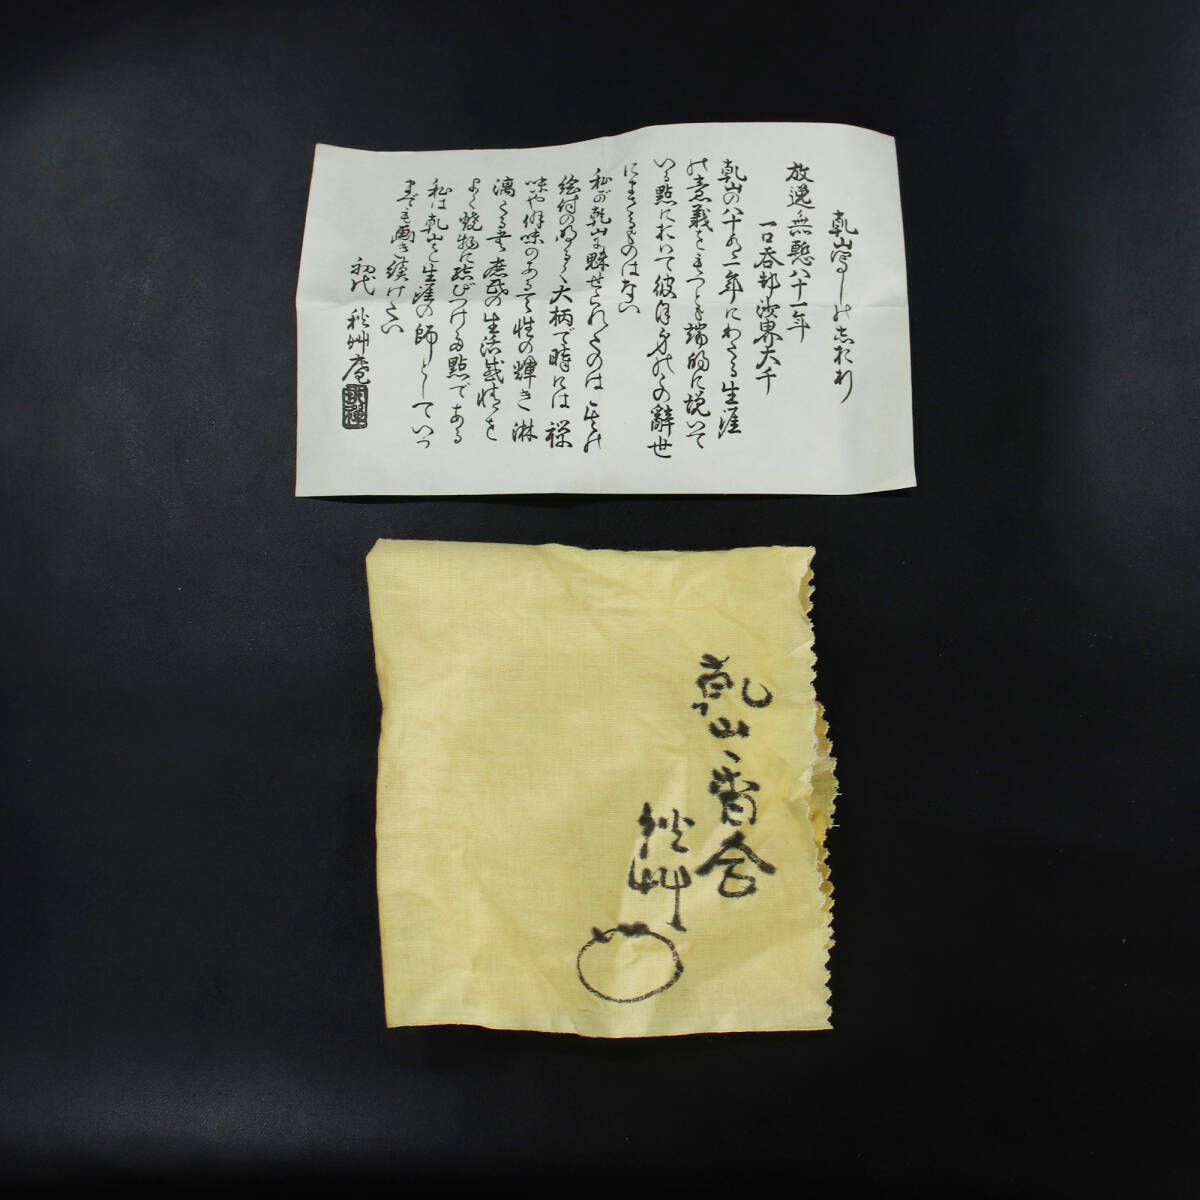 乾山写しのしおり
放逸無慙八十一年
一口呑却沙界大千
乾山の八十有一年にわたる生涯
の意義をもっとも端的に説いて
いる點において彼自身のこの辭世
にまさるものはない
私が乾山に魅せられたのは其の
絵付の明るく大柄で時には禅
味や俳味のある天性の輝き淋
漓たる
庶民の生活感情を
よく焼物に結びつけた點である
私は乾山を生涯の師としていつ
までも画き続けたい
初代 秋艸庵
乾山 香合
秋艸